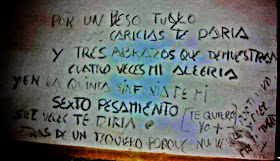 POR UN BESO TUYO
CARICIAS TE DARIA
Y TRES ABRAZOS QUE DEMUESTRAN
CUATRO VECES MI ALEGRIA
Y EN LA QUINTA
SEXTO PESAMIENTO
(TE QUIERO
YO +
SIETE VECES TE DIRIA
TRAS DE UN TQUIERO PORQUE